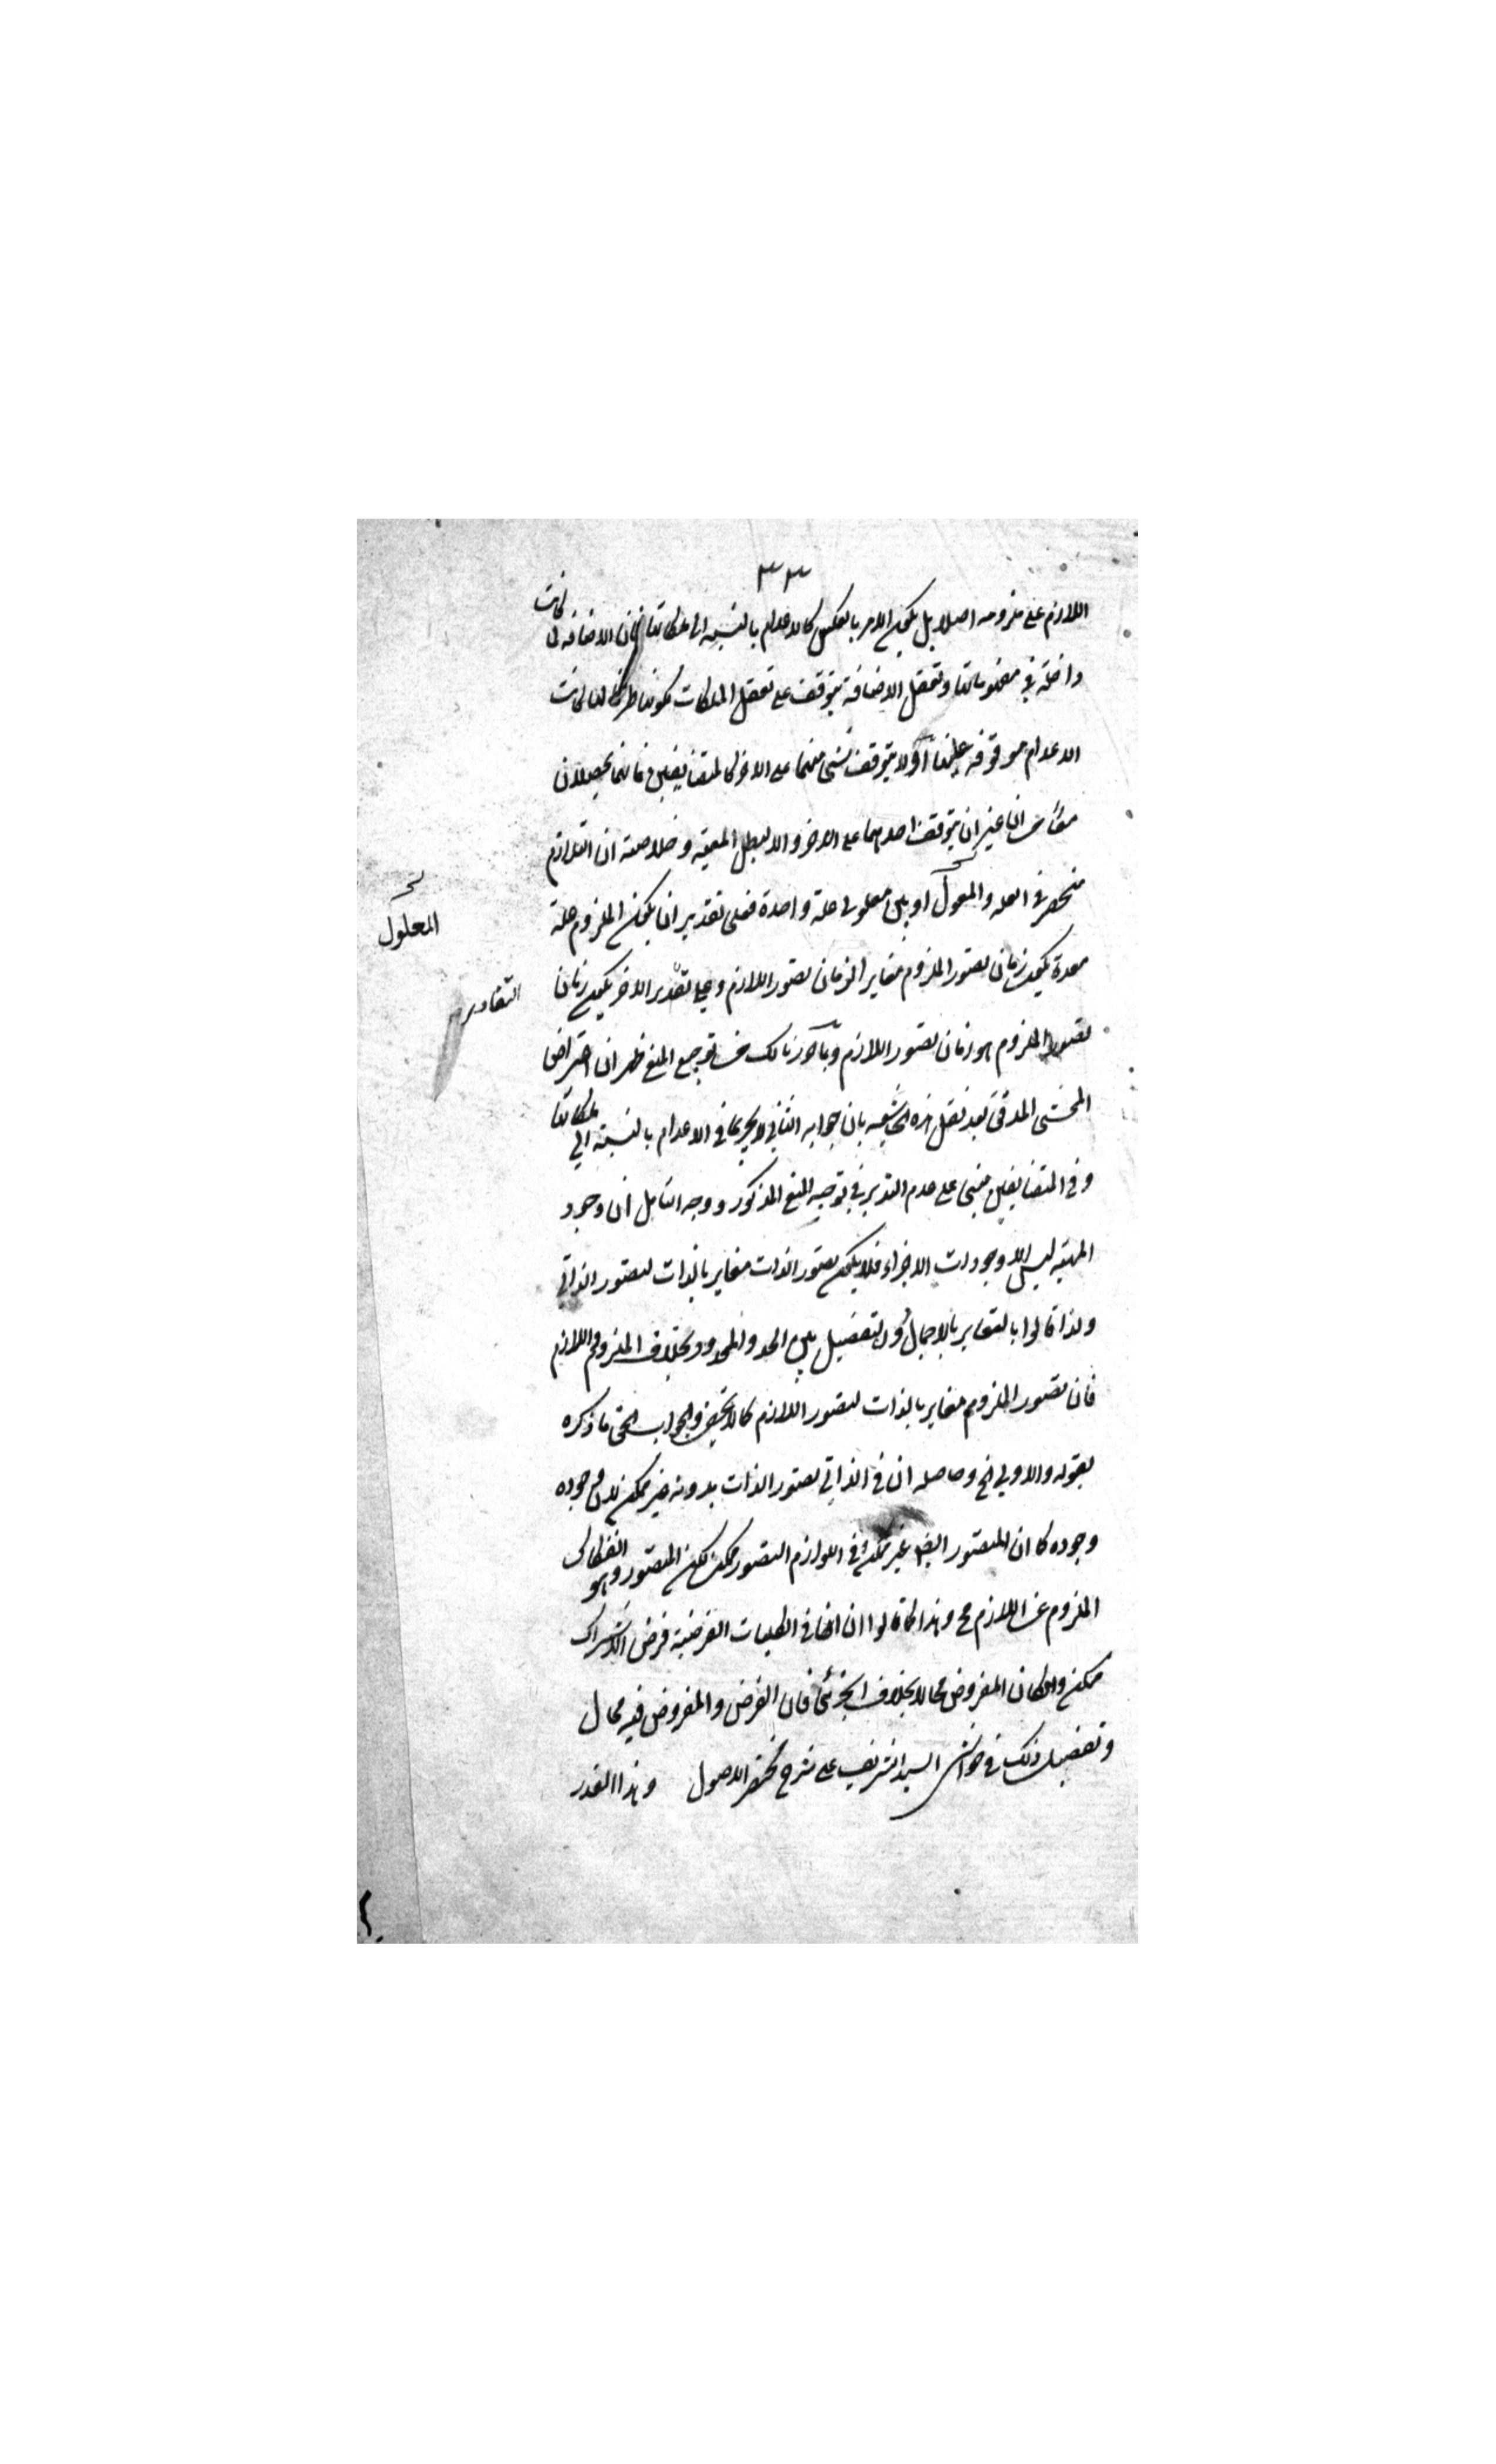 ٣٣
اللازم على ملزومه اصلا بل يكون الامر بالعكس كالاعدام بالنسبة الى ملكاتها فان الاضافة لما كانت
داخلة في مفهوماتها وتعقل الاضافة يتوقف على تعقل الملكات لكونها طرفا لها كانت
الاعدام موقوفه عليها او لا يتوقف شئ منهما على الاخر كالمتضايفين فانهما يحصلان
معا من غير ان يتوقف احدهما على الاخر والا لبطل المعية وخلاصته ان التلازم
منحصر في العله والمعول او بين معلولى علة واحدة فعلى تقدير ان يكون الملزوم علة
معدة يكون زمان تصور الملزوم مغاير الزمان تصور اللازم وعلى تقدير الاخر يكون زمان
تصور الملزوم هو زمان تصور اللازم وبما حررنا لك من توجيه المنع ظهر ان اعتراض
المحشى المدقق بعد نقل هذه الحاشية بان جوابه الثاني لا يجرى في الاعدام بالنسبة الي ملكاتها
وفي المتضايفين مبنى على عدم التدبر في توجيه المنع المذكور ووجه التامل ان وجود
المهية ليس الا وجودات الاجزاء فلا يكون تصور الذات مغاير بالذات لتصور الذاتي
ولذا قالوا بالتغاير بالاجمال والتفصيل بين الحد والمحدود بخلاف الملزوم واللازم
فان تصور الملزوم مغاير بالذات لتصور اللازم كما لا يخفى والجواب الحق ما ذكره
بقوله والاولى الخ وحاصله ان في الذاتي تصور الذات بدونه غير ممكن لان وجوده
وجوده كما ان المتصور ايضا غير ممكن وفي اللوازم التصور ممكن لكن المتصور وهو انفكاك
الملزوم عن اللازم مح وهذا كما قالوا ان في الكليات الفرضية فرض الاشتراك
ممكن وان كان المفروض محالا بخلاف الجزئى فان الفرض والمفروض فيه محال
وتفصيل ذلك في حواشى السيد الشريف على شرح مختصر الاصول وهذا القدر
المعلول
التقادير